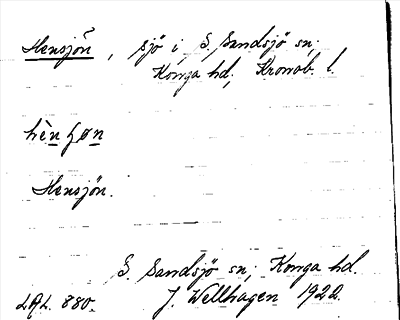 Hensjön, sjö i S. Sandsjö sn;
Konga hd; Kronob. l.
hèn ʃøn
Hensjön.
S. Sandsjö sn; Konga hd.
LAL. 880. J. Wellhagen 1922